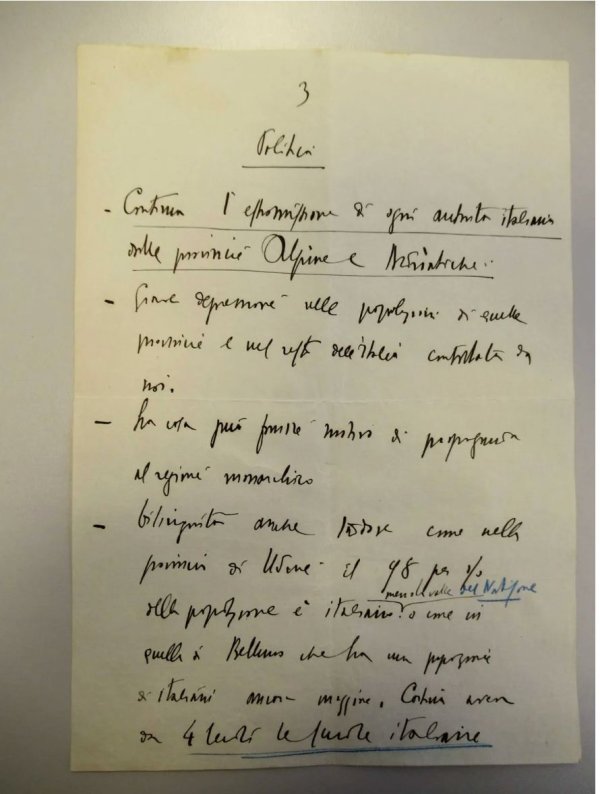 3
Politici
- Continua l'estromissione di ogni autorità italiana
dalle provincie Alpine e Adriatiche.
- Grave depressione nelle popolazioni di quelle
provincie e nel resto dell'Italia controllata da
noi.
- La cosa può fornire motivo di propaganda
al regime monarchico
- bilinguità anche laddove come nella
provincia di Udine il 98 per %
meno la valle del Natisone
della popolazione è italiana o come in
quella di Belluno che ha una popolazione
di italiani ancora maggiore. Cortina aveva
da 4 secoli le scuole italiane